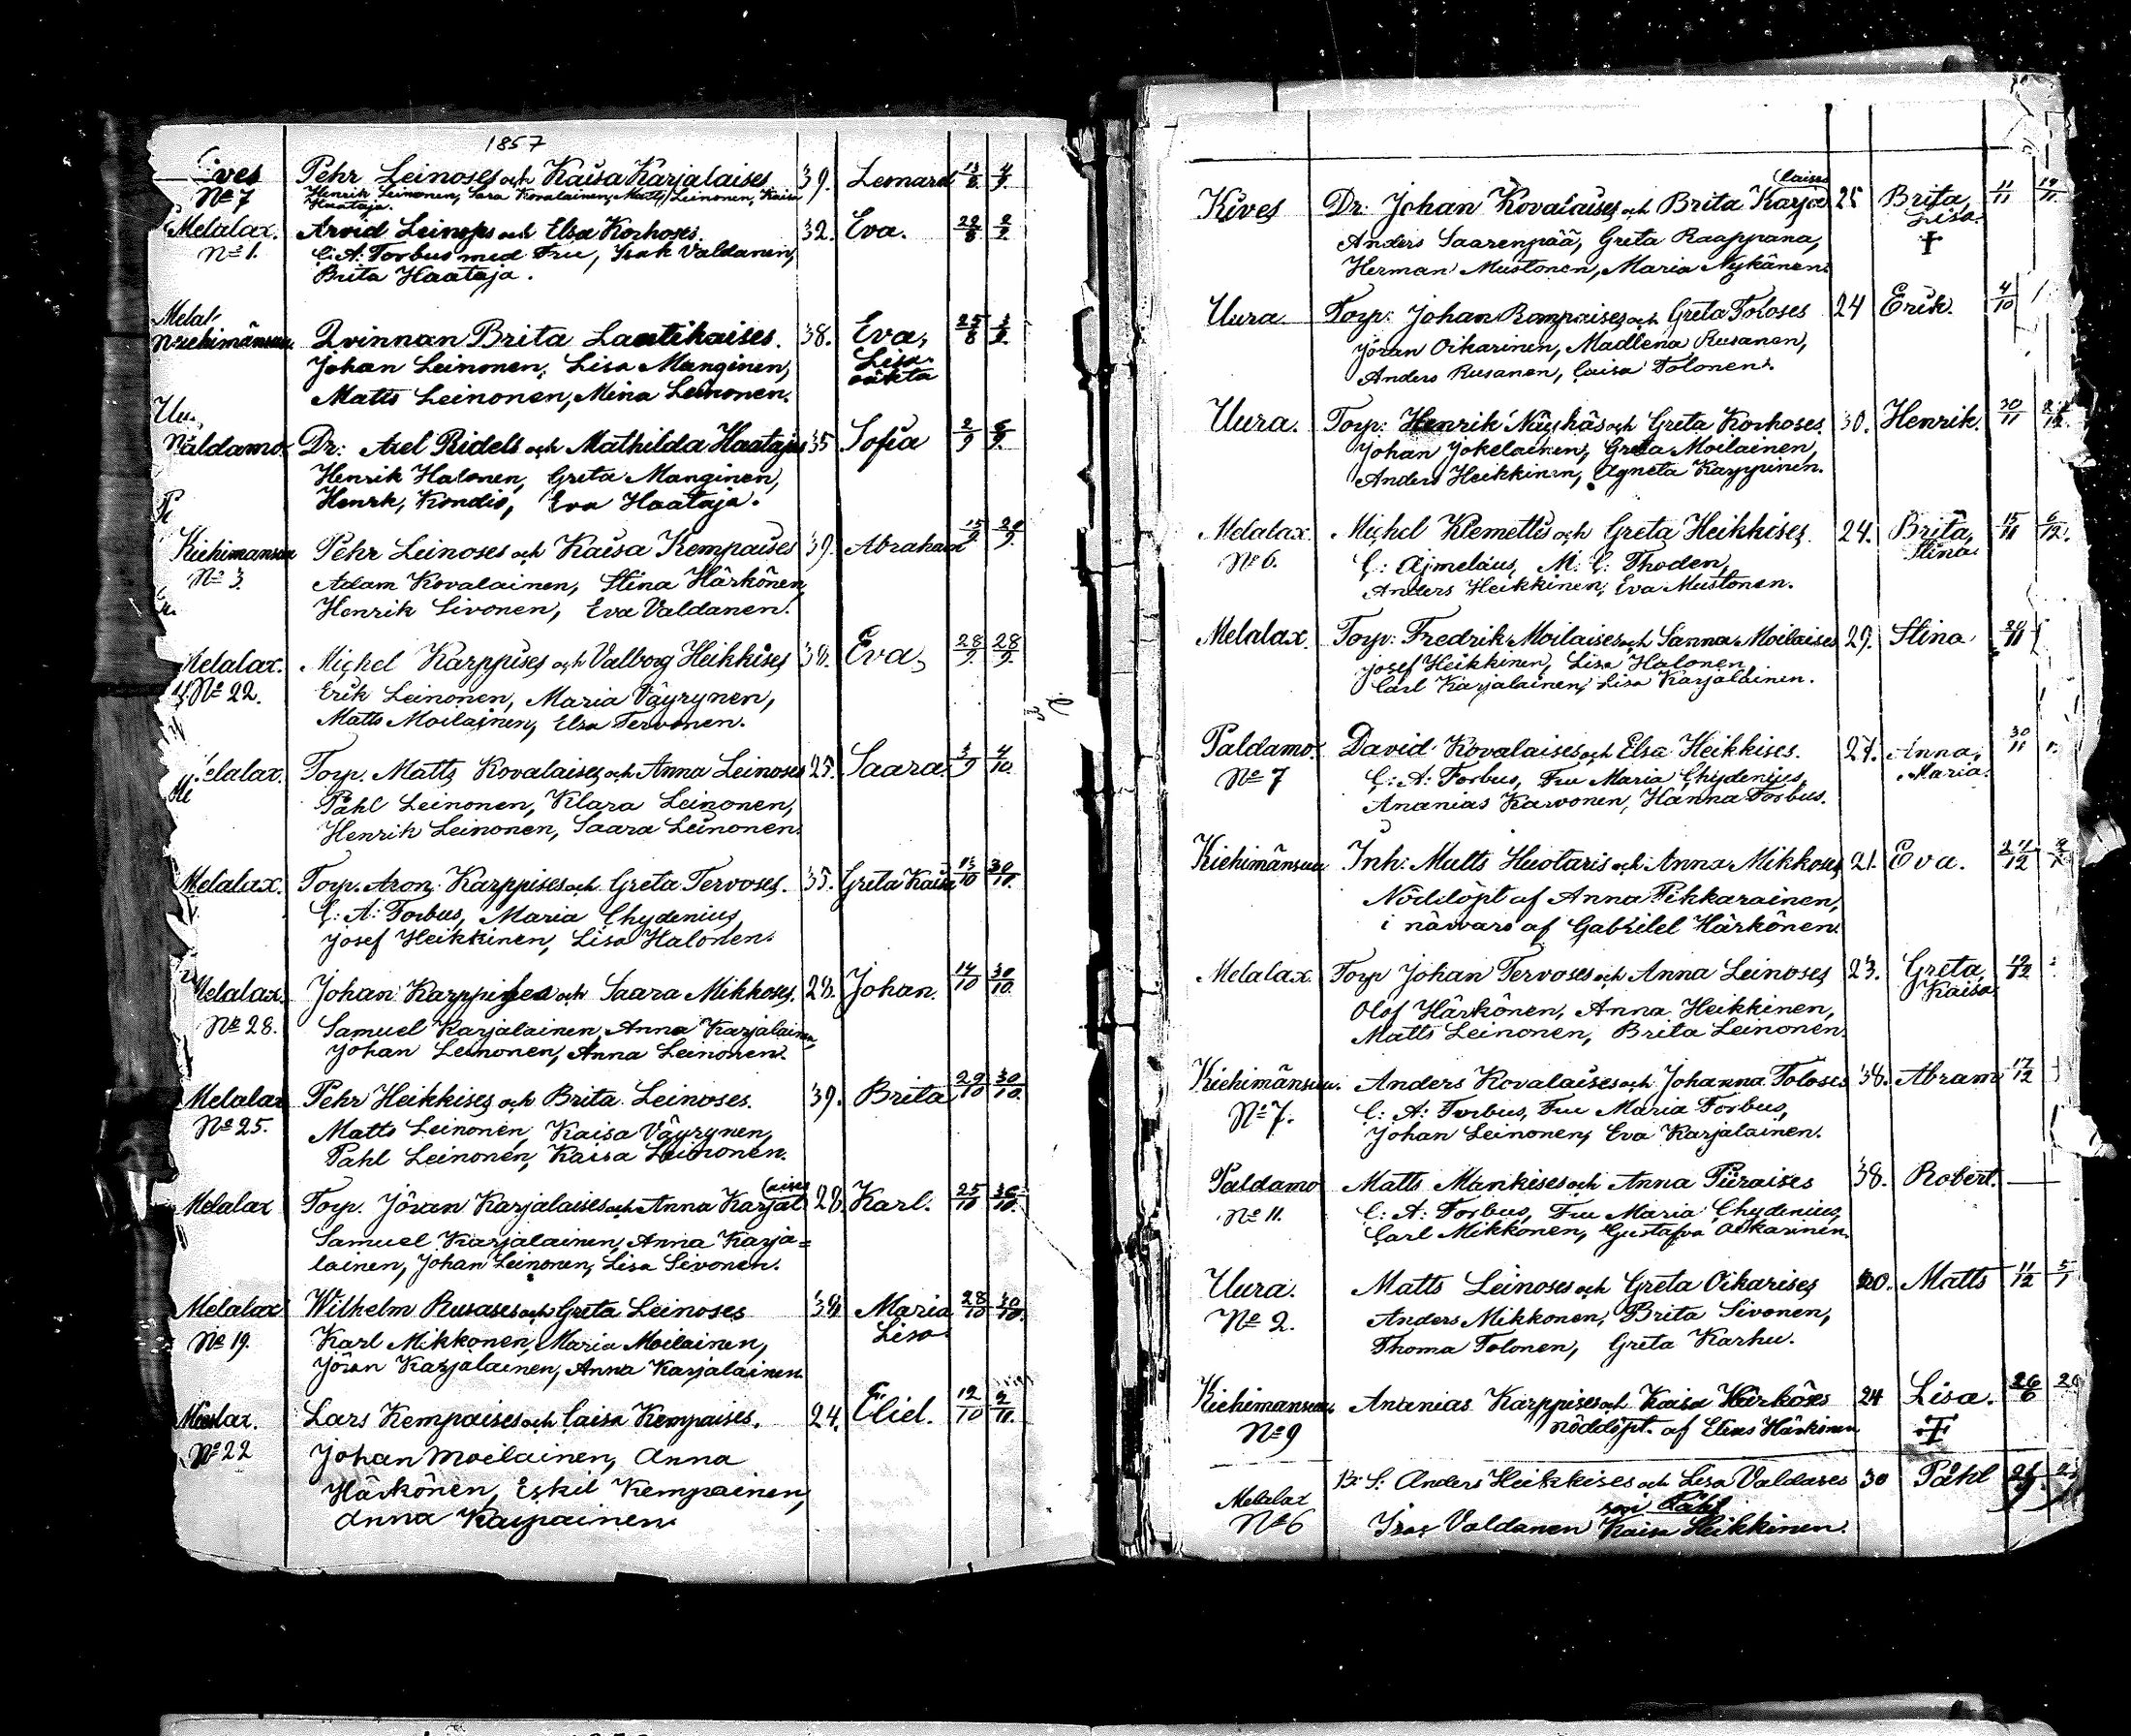 1857
ves Pehr Leinoses och Kaisa Karjalaises 39. Lemard 13/8 4/9.
No 7 Henrik Leinonen, Sara Kovalainen, Matts Leinonen, Kaisa
Haataja.
Melalax. Arvid Leinoses och Elsa Korhoses. 32. Eva. 22/8 2/9.
No 1. C: A: Forbus med Fru, Isak Valdanen,
Brita Haataja.
Melal.
Kiehimänsuu. Qvinnan Brita Lautikaises. 38. Eva, 25/8 3/9.
Johan Leinonen, Lisa Manginen, Lisa
Matts Leinonen, Mina Leinonen. oäkta
Uu.
Paldamo. Dr: Axel Ridels och Mathilda Haatajas 35 Sofia 2/9 6/9.
Henrik Halonen, Greta Manginen,
Henrk, Kondio, Eva Haataja.
Kiehimansuu Pehr Leinoses och Kaisa Kempaises 39. Abraham 15/9 20/9.
No 3. Adam Kovalainen, Stina Härkönen,
Henrik Sivonen, Eva Valdanen.
Melalax. Michel Karppises och Valborg Heikkises 38. Eva, 28/9. 28/9.
No 22. Erik Leinonen, Maria Väyrynen,
Matts Moilainen, Elsa Tervonen.
Melalax. Torp. Matts Kovalaises och Anna Leinoses 25. Saara. 3/9 4/10.
Påhl Leinonen, Klara Leinonen,
Henrik Leinonen, Saara Leinonen.
Melalax. Torp. Aron Karppises och Greta Tervoses. 35. Greta Kaisa 13/10 30/10.
C: A: Forbus, Maria Chydenius,
Josef Heikkinen, Lisa Halonen.
Melalax. Johan Karppises och Saara Mikkoses. 28. Johan. 14/10 30/10.
No 28. Samuel Karjalainen, Anna Karjalainen,
Johan Leinonen, Anna Leinonen.
Melalax Pehr Heikkises och Brita Leinoses. 39. Brita 29/10 30/10.
No 25. Matts Leinonen, Kaisa Väyrynen,
Påhl Leinonen, Kaisa Leinonen.
(aises
Melalax Torp. Jöran Karjalaises och Anna Karjal 28. Karl. 25/10 30/10.
Samuel Karjalainen, Anna Karja=
lainen, Johan Leinonen, Lisa Sivonen.
Melalax Wilhelm Rusases och Greta Leinoses 38 Maria 28/10 30/10.
No 19. Karl Mikkonen, Maria Moilainen, Lisa.
Jöran Karjalainen, Anna Karjalainen.
Lars Kempaises och Caisa Kempaises. 24. Eliel. 12/10 2/11.
No 22 Johan Moilainen, Anna
Härkönen, Eskil Kempainen,
Anna Karpainen.
(laises
Kives Dr: Johan Kovalaises och Brita Karja 25 Brita, 11/11
Anders Saarenpää, Greta Raappana, Lisa.
Herman Mustonen, Maria Nykänen. †
Uura. Torp: Johan Rompaises och Greta Toloses 24 Erik. 4/10
Jöran Oikarinen, Madlena Rusanen,
Anders Rusanen, Caisa Tolonen.
Uura. Torp: Henrik Näykäs och Greta Korhoses. 30. Henrik. 30/11
Johan Jokelainen, Greta Moilainen,
Anders Heikkinen, Agneta Karppinen.
Melalax. Michel Klemettis och Greta Heikkises. 24. Brita, 15/11 6/12.
No 6. C: Ajmeläus, M: C: Thoden, Stina
Anders Heikkinen, Eva Mustonen.
Melalax. Torp: Fredrik Moilaises och Sanna Moilaises 29. Stina 20/11
Josef Heikkinen, Lisa Halonen
Carl Karjalainen, Lisa Karjalainen.
Paldamo. David Kovalaises och Elsa Heikkises. 27. Anna, 30/11
No 7 C: A: Forbus, Fru Maria Chydenius, Maria.
Ananias Karvonen, Hanna Forbus.
Kiehimänsuu Inh: Matts Huotaris och Anna Mikkoses 21. Eva. 27/12
Nöddöpt af Anna Pikkarainen,
i närvaro af Gabrilel Härkönen.
Melalax Torp Johan Tervoses och Anna Leinoses 23. Greta, 12/12
Olof Härkönen, Anna Heikkinen, Kaisa.
Matts Leinonen, Brita Leinonen.
Kiehimänsuu. Anders Kovalaises och Johanna Toloses 38. Abram 17/12
No 7. C: A: Forbus, Fru Maria Forbus,
Johan Leinonen, Eva Karjalainen.
Paldamo Matts Mankises och Anna Piiraises 38. Robert.
No 11. C: A: Forbus, Fru Maria Chydenius,
Carl Mikkonen, Gustafva Oikarinen.
Uura. Matts Leinoses och Greta Oikarises 20. Matts 11/12 5/1
No 2. Anders Mikkonen, Brita Sivonen,
Thoma Tolonen, Greta Karhu.
Kiehimansuu Antenias Karppises och Kaisa Härköses 24 Lisa. 26/6
No 9 Nöddöpt. af Elias Härkönen †
B: S: Anders Heikkises och Lisa Valdases 30 Påhl
Melalax son Påhl
No 6 Isac Valdanen Kaisa Heikkinen.